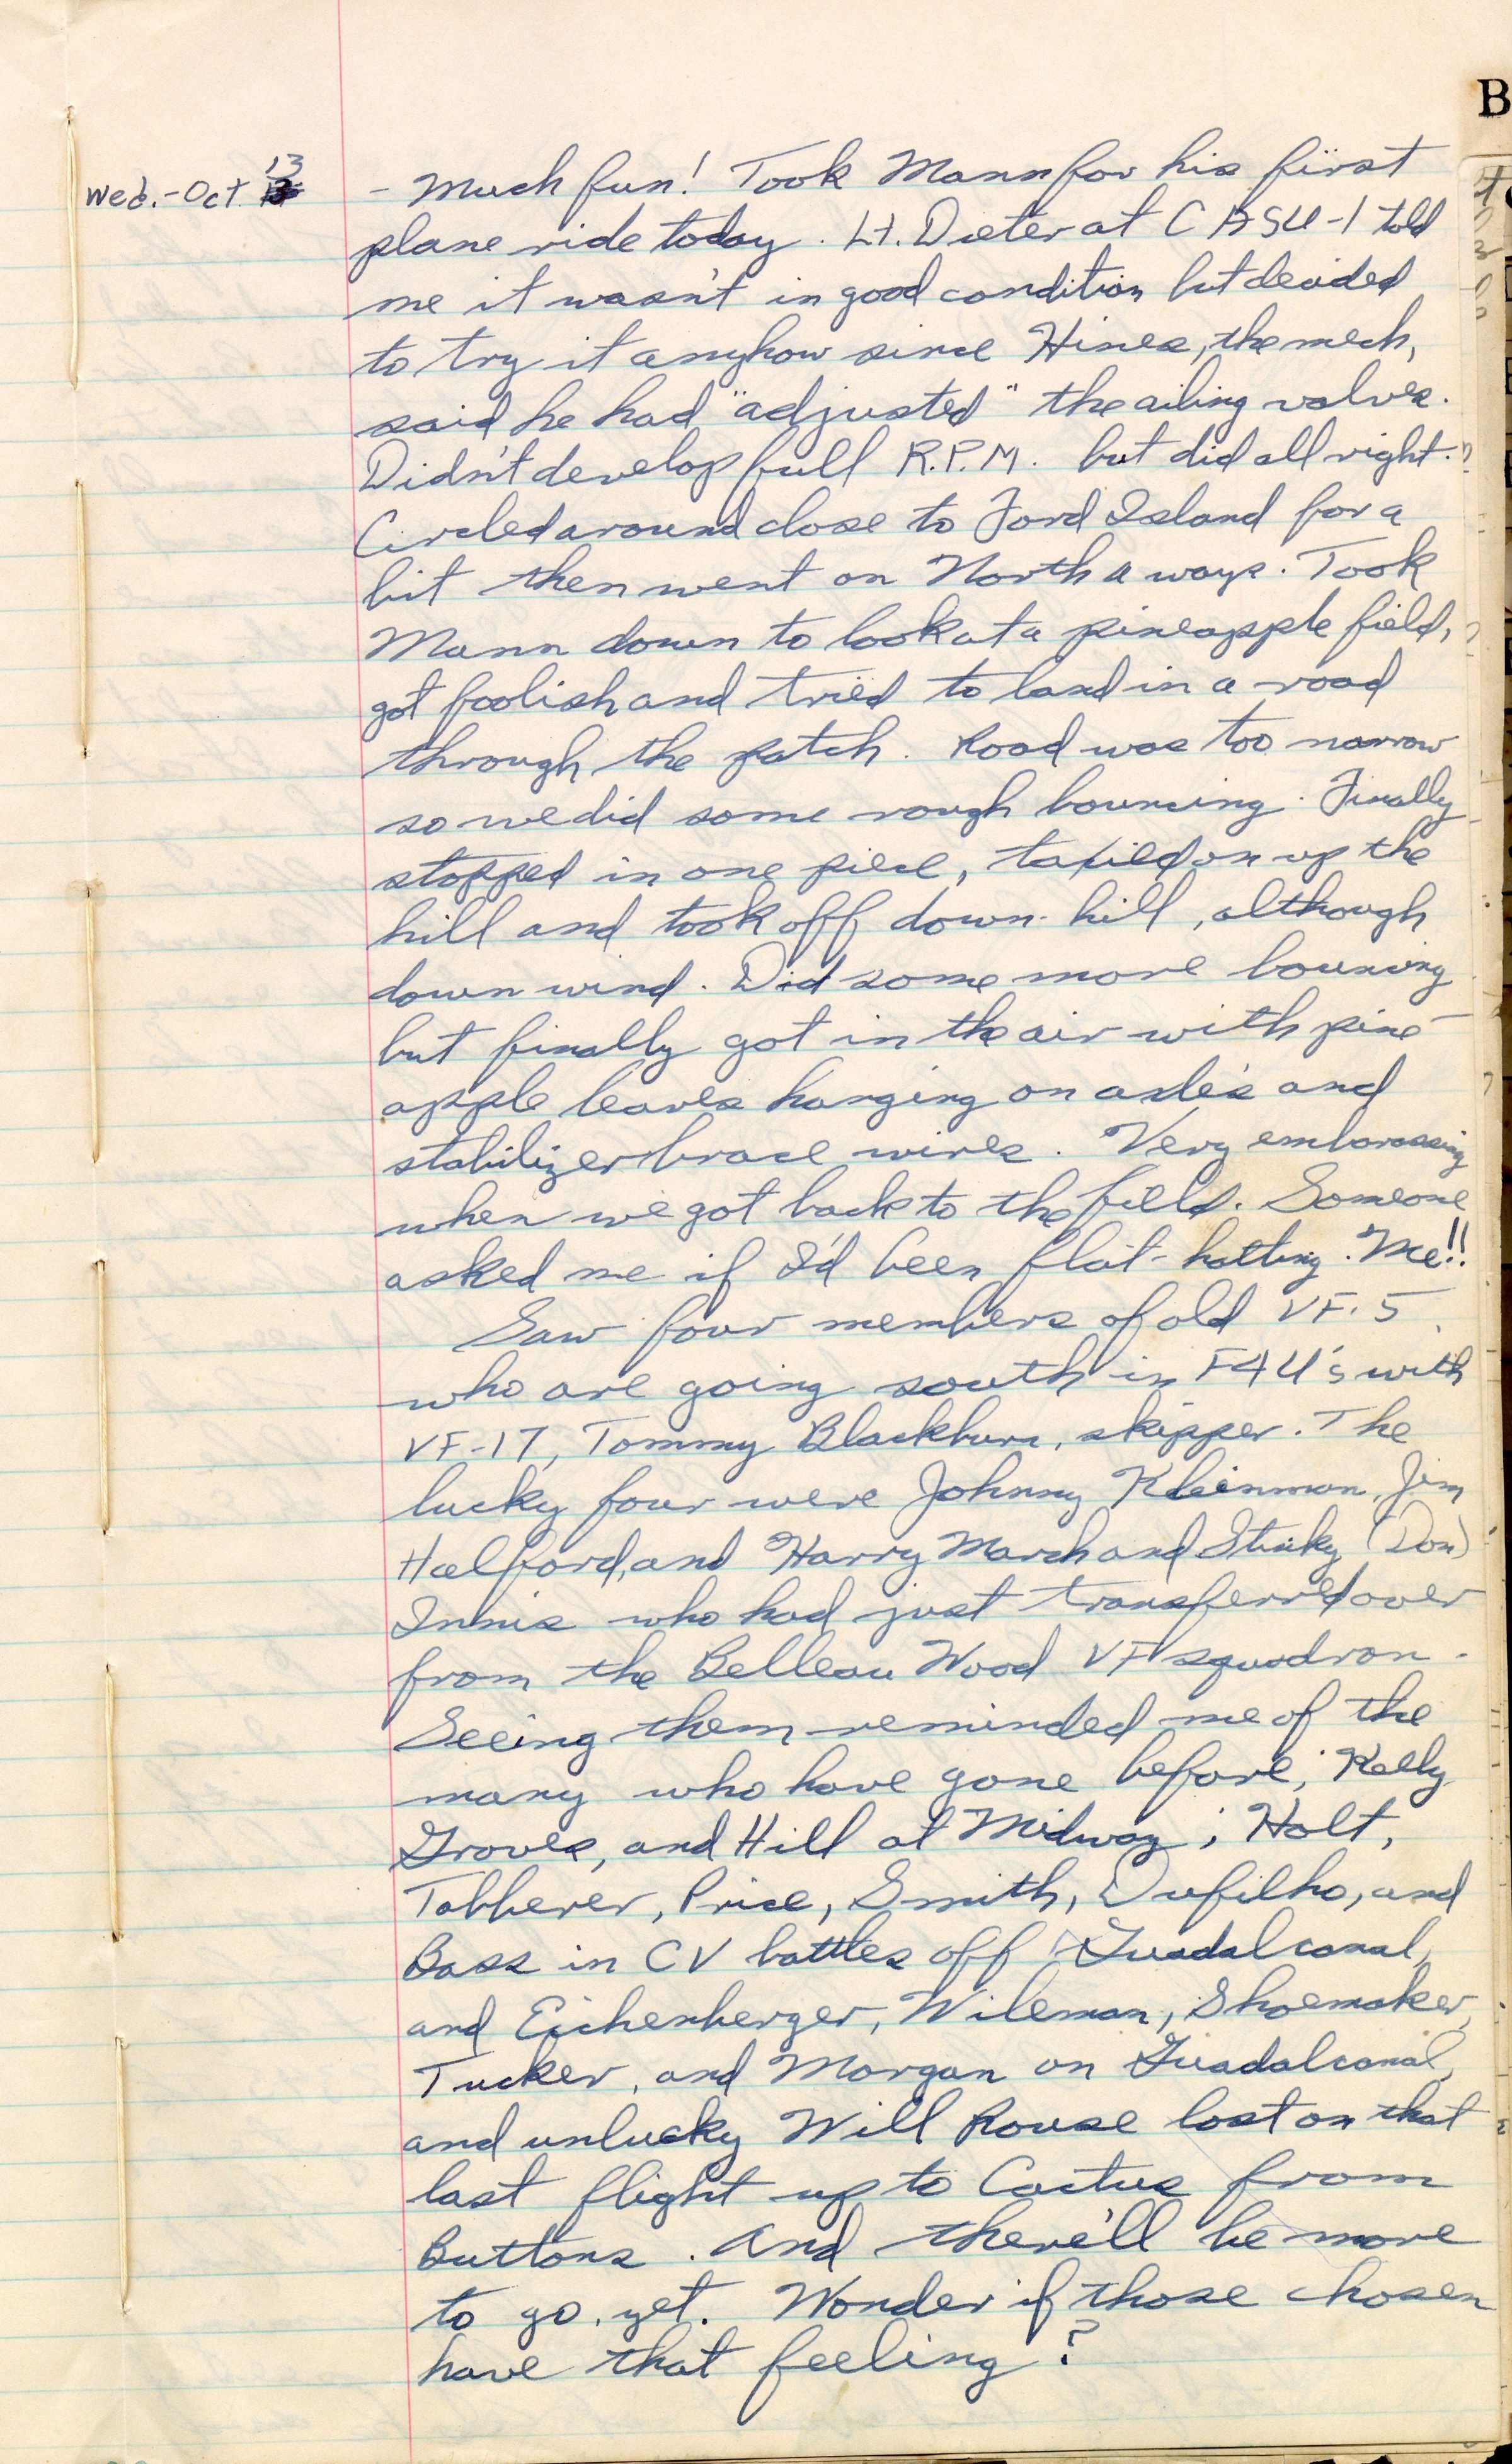 Wed. - Oct. 13
- Much fun! Took Mann for his first
plane ride today. Lt. Dieter at CASU-1 told
me it wasn't in good condition but decided
to try it anyhow since Hines, the mech,
said he had "adjusted" the ailing valves.
Didn't develop full R.P.M. but did all right.
Circled around close to Ford Island for a
bit then went on North a ways. Took
Mann down to look at a pineapple field,
got foolish and tried to land in a road
through the patch. Road was too narrow
so we did some rough bouncing. Finally
stopped in one piece, taxied on up the
hill and took off down-hill, although
down wind. Did some more bouncing
but finally got in the air with pine-
apple leaves hanging on axles and
stabilizer brace wires. Very embarassing
when we got back to the field. Someone
asked me if I'd been flat-hatting. Me!!
Saw four members of old VF-5
who are going south in F4U's with
VF-17, Tommy Blackburn, skipper. The
lucky four were Johnny Kleinman, Jim
Halford, and Harry March and Stinky (Don)
Innis who had just transferred over
from the Belleau Wood VF squadron.
Seeing them reminded me of the
many who have gone before; Kelly
Groves, and Hill at Midway; Holt,
Tabberer, Price, Smith, Dufilho, and
Bass in CV battles off Guadalcanal,
and Eichenberger, Wileman, Shoemaker,
Tucker, and Morgan on Guadalcanal,
and unlucky Will Rouse lost on that
last flight up to Cactus from
Buttons. And there'll be more
to go, yet. Wonder if those chosen
have that feeling?
B